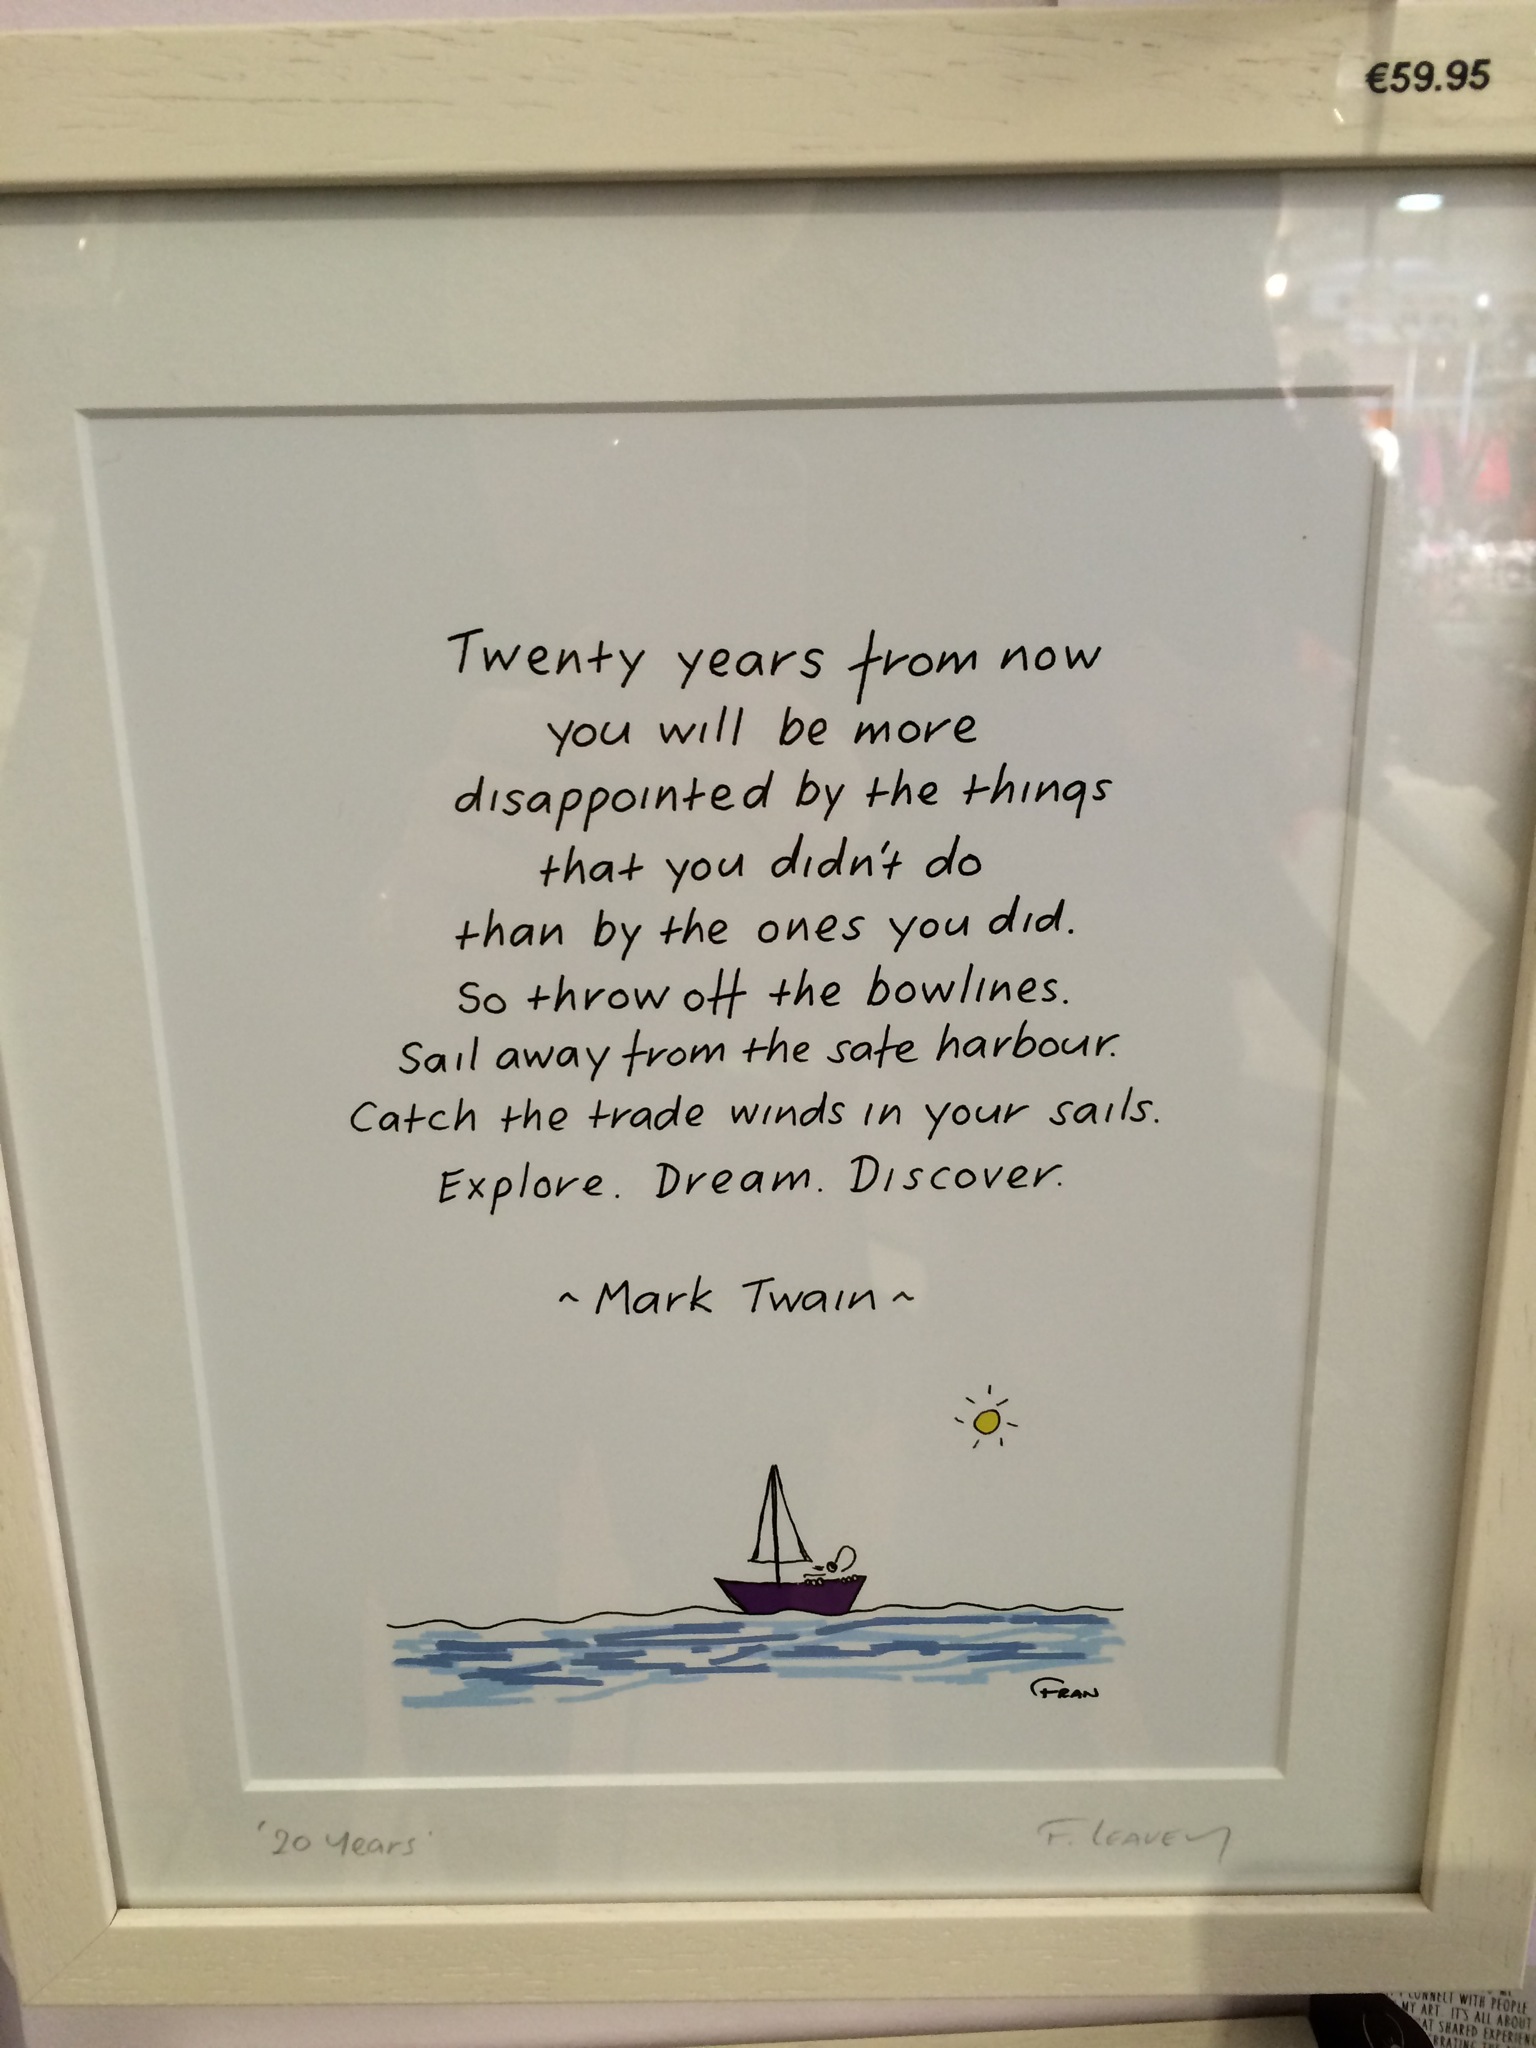 €59.95
Twenty years from now
you will be more
disappointed by the things
that you didn't do
than by the ones you did.
So throw off the bowlines.
Sail away from the safe harbour.
Catch the trade winds in your sails.
Explore. Dream. Discover.
~ Mark Twain ~
FRAN
'20 Years'
F. LEAVEY
CONNECT WITH PEOPLE
MY ART. IT'S ALL ABOUT
SHARED